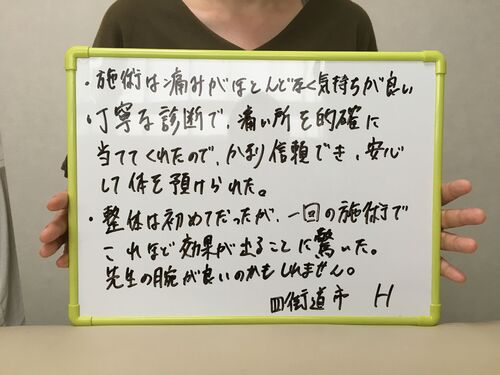 ・施術は痛みがほとんどなく気持ちが良い
・丁寧な診断で、痛い所を的確に
当ててくれたので、かなり信頼でき、安心
して体を預けられた。
・整体は初めてだったが、一回の施術で
これほど効果が出ることに驚いた。
先生の腕が良いのかもしれません。
四街道市 H